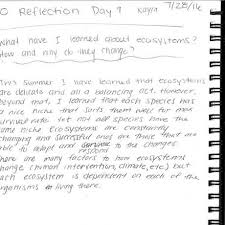 O Reflection Day 7 Kayla 7/28/16
What have I learned about ecosystems?
How and why do they change?
This summer I have learned that ecosystems
are delicate and all a balancing act. However,
beyond that, I learned that each species has
a nice niche that suits them well for max
survival rate. Yet not all species have the
same niche. Ecosystems are constantly
changing and successful ones are those that are
able to adapt and respond to the changes.
There are many factors to how ecosystems
change (human intervention, climate, etc.) but
each ecosystem is dependent on each of the
organisms living there.